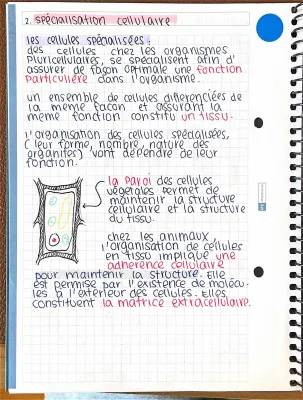 2. spécialisation cellulaire
les cellules spécialisées:
des cellules chez les organismes
Pluricellulaires, se spécialisent afin d'
assurer de façon optimale une fonction
Particulière dans l'organisme.
un ensemble de cellules différenciées de
la meme facon et assurant la
meme fonction constitu un tissu.
l'organisation des cellules spécialisées,
(leur forme, nombre, nature des
organites) vont dépendre de leur
fonction.
la Paroi des cellules
végétales permet de
maintenir la structure
cellulaire et la structure
du tissu.
chez les animaux,
l'organisation de cellules
en tissu implique une
adhérence cellulaire
pour maintenir la structure. Elle
est permise par l'existence de molécu-
les à l'extérieur des cellules. Elles
constituent la matrice extracellulaire.